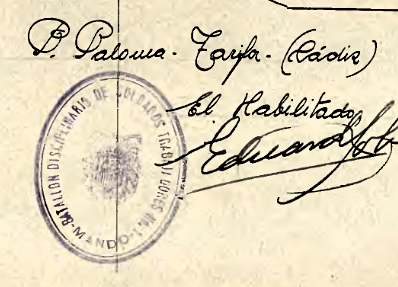 P. Paloma - Tarifa - (Cádiz)
El Habilitado
Eduardo
BATALLON DISCIPLINARIO DE SOLDADOS TRABAJADORES
MANDO